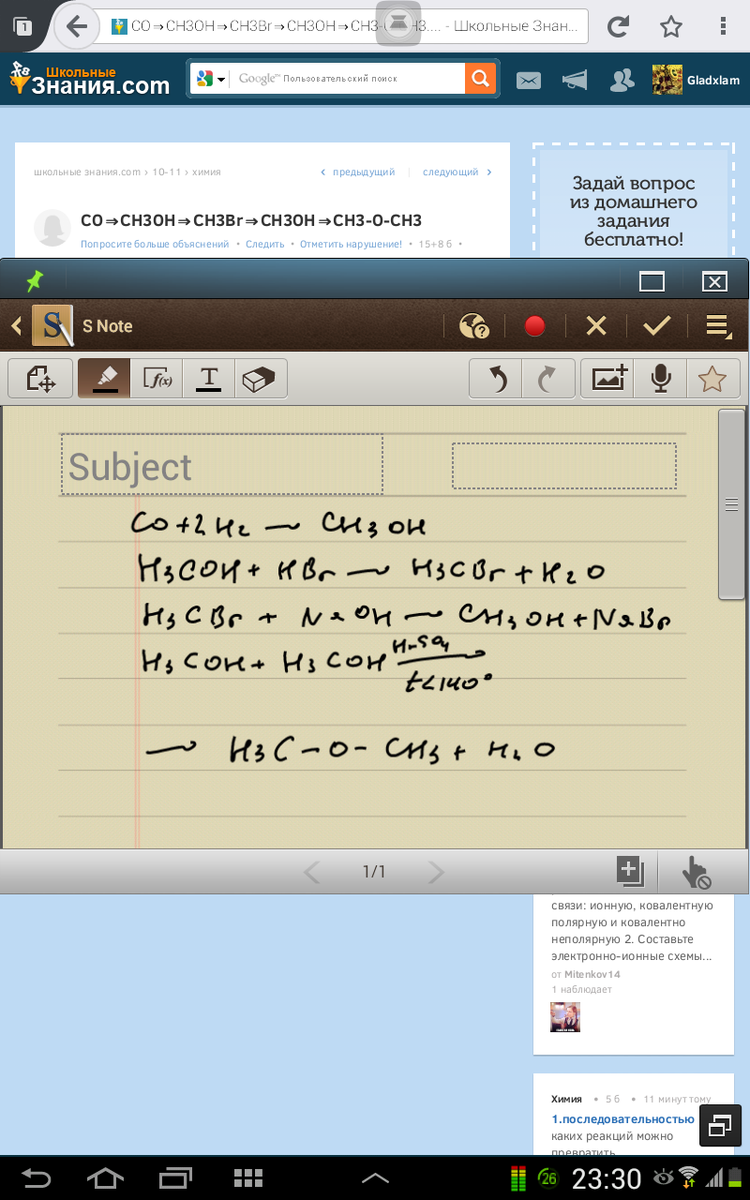 1
CO⇒CH3OH⇒CH3Br⇒CH3OH⇒CH3-O-CH3.... - Школьные Знан...
Школьные
Знания.com
Google™ Пользовательский поиск
Gladxlam
школьные знания.com › 10-11 › химия
‹ предыдущий | следующий ›
CO⇒CH3OH⇒CH3Br⇒CH3OH⇒CH3-O-CH3
Попросите больше объяснений • Следить • Отметить нарушение! • 15+8 б •
Задай вопрос
из домашнего
задания
бесплатно!
S Note
f(x)
T
Subject
CO + 2H2 → CH3OH
H3COH + HBr → H3CBr + H2O
H3CBr + NaOH → CH3OH + NaBr
H3COH + H3COH H2SO4
t<140°
→ H3C-O-CH3 + H2O
1/1
связи: ионную, ковалентную
полярную и ковалентно
неполярную 2. Составьте
электронно-ионные схемы...
от Mitenkov14
1 наблюдает
Химия • 5 б • 11 минут тому
1.последовательностью
каких реакций можно
превратить
26
23:30